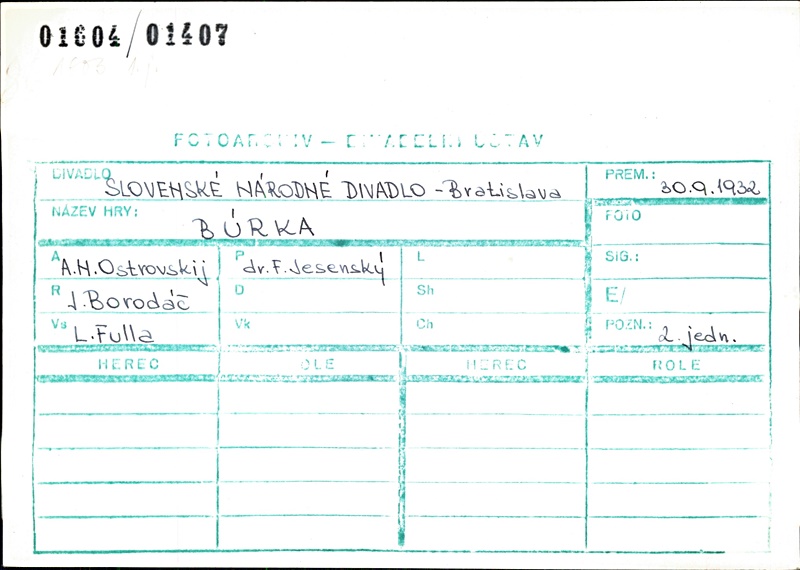 01604/01407
FOTOARCHIV — DIVADELNÍ ÚSTAV
DIVADLO SLOVENSKÉ NÁRODNÉ DIVADLO - Bratislava
PREM.: 30.9.1932
NÁZEV HRY: BÚRKA
FOTO
A A.N.Ostrovskij P dr.F.Jesenský L
SIG.:
R J.Borodáč D Sh
E/
Vs L.Fulla Vk Ch
POZN.: 2. jedn.
HEREC OLE HEREC ROLE